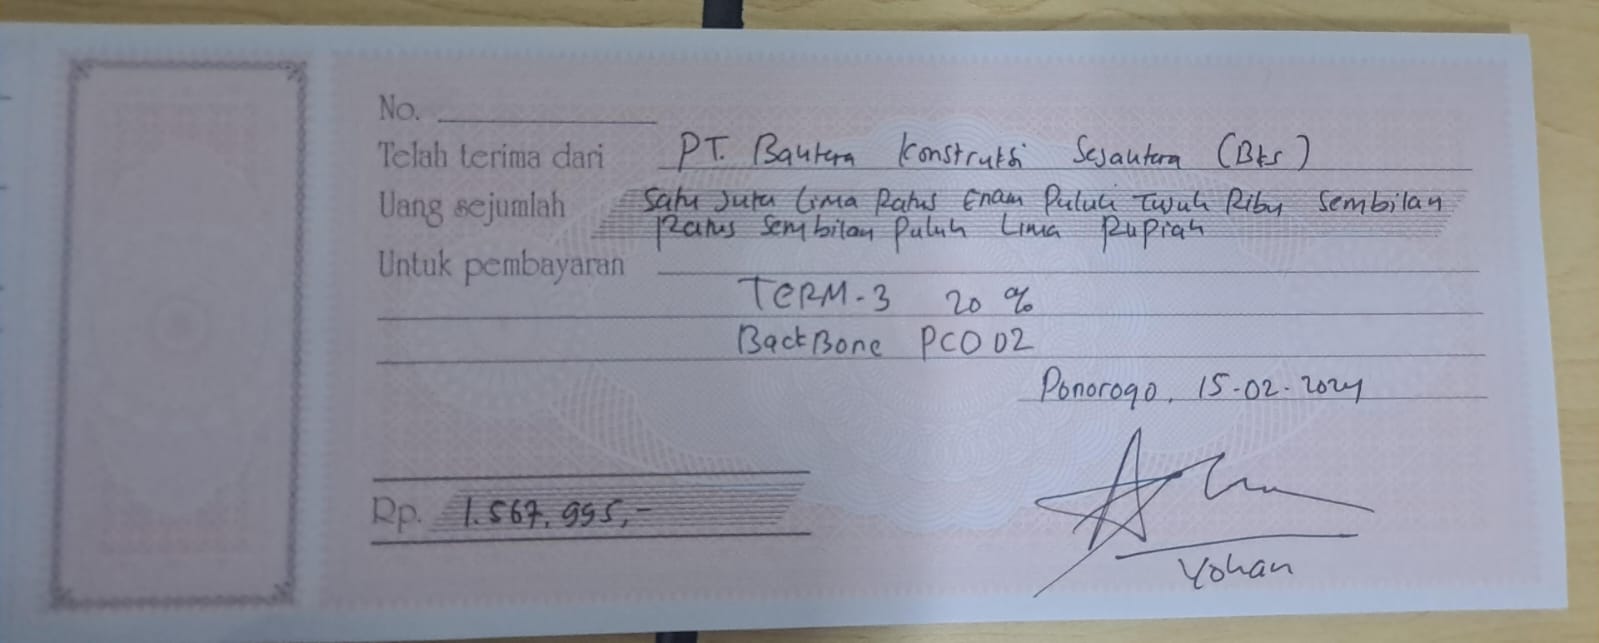 No.
Telah terima dari PT. Bautera Konstruksi Sejautera (Bks)
Uang sejumlah Satu Juta Lima Ratus Enam Puluh Tujuh Ribu Sembilan
Ratus Sembilan Puluh Lima Rupiah
Untuk pembayaran
TERM-3 20 %
BackBone PCO 02
Ponorogo, 15-02-2024
Rp. 1.567.995,-
Yohan